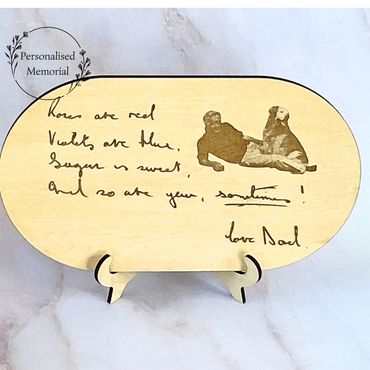 Personalised
Memorial
Roses are red
Violets are blue,
Sugar is sweet,
And so are you, sometimes!
love Dad.